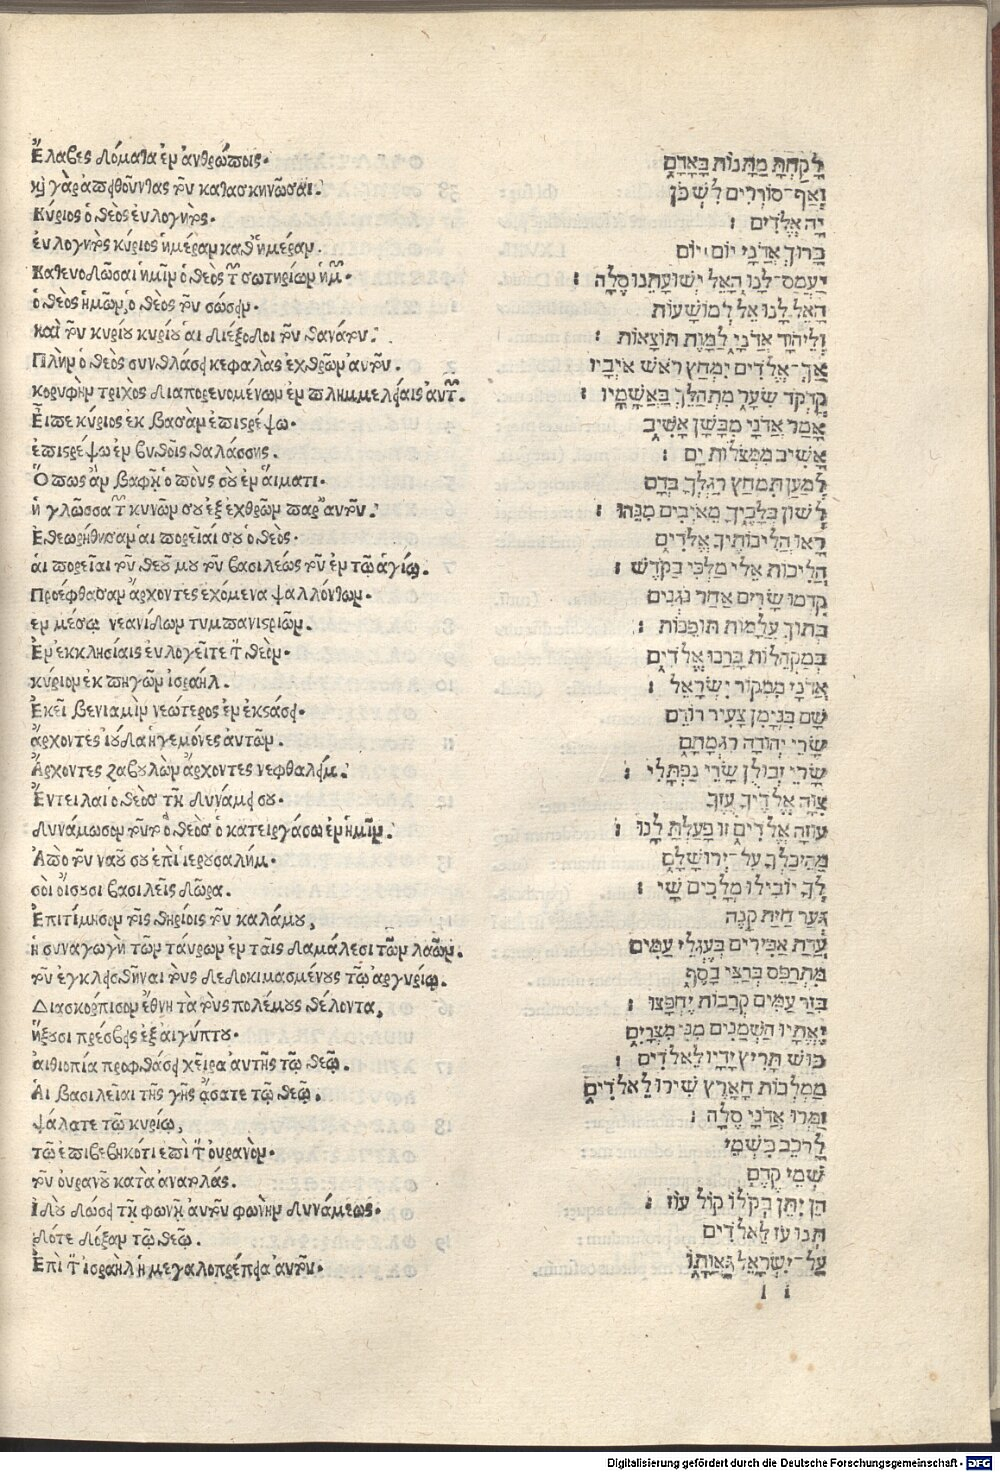 Ἔλαβες δόματα ἐν ἀνθρώποις.
κỳ γὰρ ἀπειθοῦντας τοῦ κατασκηνῶσαι.
Κύριος ὁ θεὸς εὐλογητός.
εὐλογητὸς κύριος ἡμέραν καθ' ἡμέραν.
Κατευοδώσαι ἡμῖν ὁ θεὸς τῶν σωτηρίων ἡμῶν.
ὁ θεὸς ἡμῶν, ὁ θεὸς τοῦ σώσειν.
καὶ τοῦ κυρίου κυρίου αἱ διέξοδοι τοῦ θανάτου.
Πλὴν ὁ θεὸς συνθλάσει κεφαλὰς ἐχθρῶν αὐτοῦ.
κορυφὴν τριχὸς διαπορευομένων ἐν πλημμελείαις αὐτῶν.
Εἶπε κύριος ἐκ βασὰν ἐπιστρέψω.
ἐπιστρέψω ἐν βυθοῖς θαλάσσης.
Ὅπως ἂν βαφῇ ὁ ποὺς σου ἐν αἵματι.
ἡ γλῶσσα τῶν κυνῶν σου ἐξ ἐχθρῶν παρ' αὐτοῦ.
Ἐθεωρήθησαν αἱ πορεῖαί σου ὁ θεός.
αἱ πορεῖαι τοῦ θεοῦ μου τοῦ βασιλέως τοῦ ἐν τῷ ἁγίῳ.
Προέφθασαν ἄρχοντες ἐχόμενα ψαλλόντων.
ἐν μέσῳ νεανίδων τυμπανιστριῶν.
Ἐν ἐκκλησίαις εὐλογεῖτε τὸν θεόν.
κύριον ἐκ πηγῶν ἰσραήλ.
Ἐκεῖ βενιαμὶν νεώτερος ἐν ἐκστάσει.
ἄρχοντες ἰούδα ἡγεμόνες αὐτῶν.
Ἄρχοντες ζαβουλὼν ἄρχοντες νεφθαλείμ.
Ἔντειλαι ὁ θεὸς τῇ δυνάμει σου.
δυνάμωσον τοῦτο ὁ θεὸς ὃ κατειργάσω ἐν ἡμῖν.
Ἀπὸ τοῦ ναοῦ σου ἐπὶ ἱερουσαλήμ.
σοὶ οἴσουσι βασιλεῖς δῶρα.
Ἐπιτίμησον τοῖς θηρίοις τοῦ καλάμου,
ἡ συναγωγὴ τῶν ταύρων ἐν ταῖς δαμάλεσι τῶν λαῶν.
τοῦ ἐγκλεισθῆναι τοὺς δεδοκιμασμένους τῷ ἀργυρίῳ.
Διασκόρπισον ἔθνη τὰ τοὺς πολέμους θέλοντα,
ἥξουσι πρέσβεις ἐξ αἰγύπτου.
αἰθιοπία προφθάσει χεῖρα αὐτῆς τῷ θεῷ.
Αἱ βασιλεῖαι τῆς γῆς ᾄσατε τῷ θεῷ.
ψάλατε τῷ κυρίῳ,
τῷ ἐπιβεβηκότι ἐπὶ τὸν οὐρανόν.
τοῦ οὐρανοῦ κατὰ ἀνατολάς.
ἰδοὺ δώσει τῇ φωνῇ αὐτοῦ φωνὴν δυνάμεως.
δότε δόξαν τῷ θεῷ.
Ἐπὶ τὸν ἰσραὴλ ἡ μεγαλοπρέπεια αὐτοῦ.
לָקַחְתָּ מַתָּנוֹת בָּאָדָם
וְאַף־סוֹרְרִים לִשְׁכֹּן
יָהּ אֱלֹדִים :
בָּרוּךְ אֲדֹנָי יוֹם יוֹם
יַעֲמָס־לָנוּ הָאֵל יְשׁוּעָתֵנוּ סֶלָה :
הָאֵל לָנוּ אֵל לְמוֹשָׁעוֹת
וְלֵיהוָד אֲדֹנָי לַמָּוֶת תּוֹצָאוֹת :
אַךְ־אֱלֹדִים יִמְחַץ רֹאשׁ אֹיְבָיו
קָדְקֹד שֵׂעָר מִתְהַלֵּךְ בַּאֲשָׁמָיו :
אָמַר אֲדֹנָי מִבָּשָׁן אָשִׁיב
אָשִׁיב מִמְּצֻלוֹת יָם :
לְמַעַן תִּמְחַץ רַגְלְךָ בְּדָם
לְשׁוֹן כְּלָבֶיךָ מֵאוֹיְבִים מִנֵּהוּ :
רָאוּ הֲלִיכוֹתֶיךָ אֱלֹדִים
הֲלִיכוֹת אֵלִי מַלְכִּי בַקֹּדֶשׁ :
קִדְּמוּ שָׂרִים אַחַר נֹגְנִים
בְּתוֹךְ עֲלָמוֹת תּוֹפֵפוֹת :
בְּמַקְהֵלוֹת בָּרְכוּ אֱלֹדִים
אֲדֹנָי מִמְּקוֹר יִשְׂרָאֵל :
שָׁם בִּנְיָמִן צָעִיר רוֹדֵם
שָׂרֵי יְהוּדָה רִגְמָתָם
שָׂרֵי זְבוּלֻן שָׂרֵי נַפְתָּלִי :
צִוָּה אֱלֹדֶיךָ עֻזֶּךָ
עוּזָּה אֱלֹדִים זוּ פָּעַלְתָּ לָנוּ :
מֵהֵיכָלֶךָ עַל־יְרוּשָׁלָם
לְךָ יוֹבִילוּ מְלָכִים שָׁי :
גְּעַר חַיַּת קָנֶה
עֲדַת אַבִּירִים בְּעֶגְלֵי עַמִּים
מִתְרַפֵּס בְּרַצֵּי כָסֶף
בִּזַּר עַמִּים קְרָבוֹת יֶחְפָּצוּ :
יֶאֱתָיוּ חַשְׁמַנִּים מִנִּי מִצְרָיִם
כּוּשׁ תָּרִיץ יָדָיו לֵאלֹדִים :
מַמְלְכוֹת הָאָרֶץ שִׁירוּ לֵאלֹדִים
זַמְּרוּ אֲדֹנָי סֶלָה :
לָרֹכֵב בִּשְׁמֵי
שְׁמֵי קֶדֶם
הֵן יִתֵּן בְּקֹלוֹ קוֹל עוֹז :
תְּנוּ עֹז לֵאלֹדִים
עַל־יִשְׂרָאֵל גַּאֲוָתוֹ
Digitalisierung gefördert durch die Deutsche Forschungsgemeinschaft - DFG